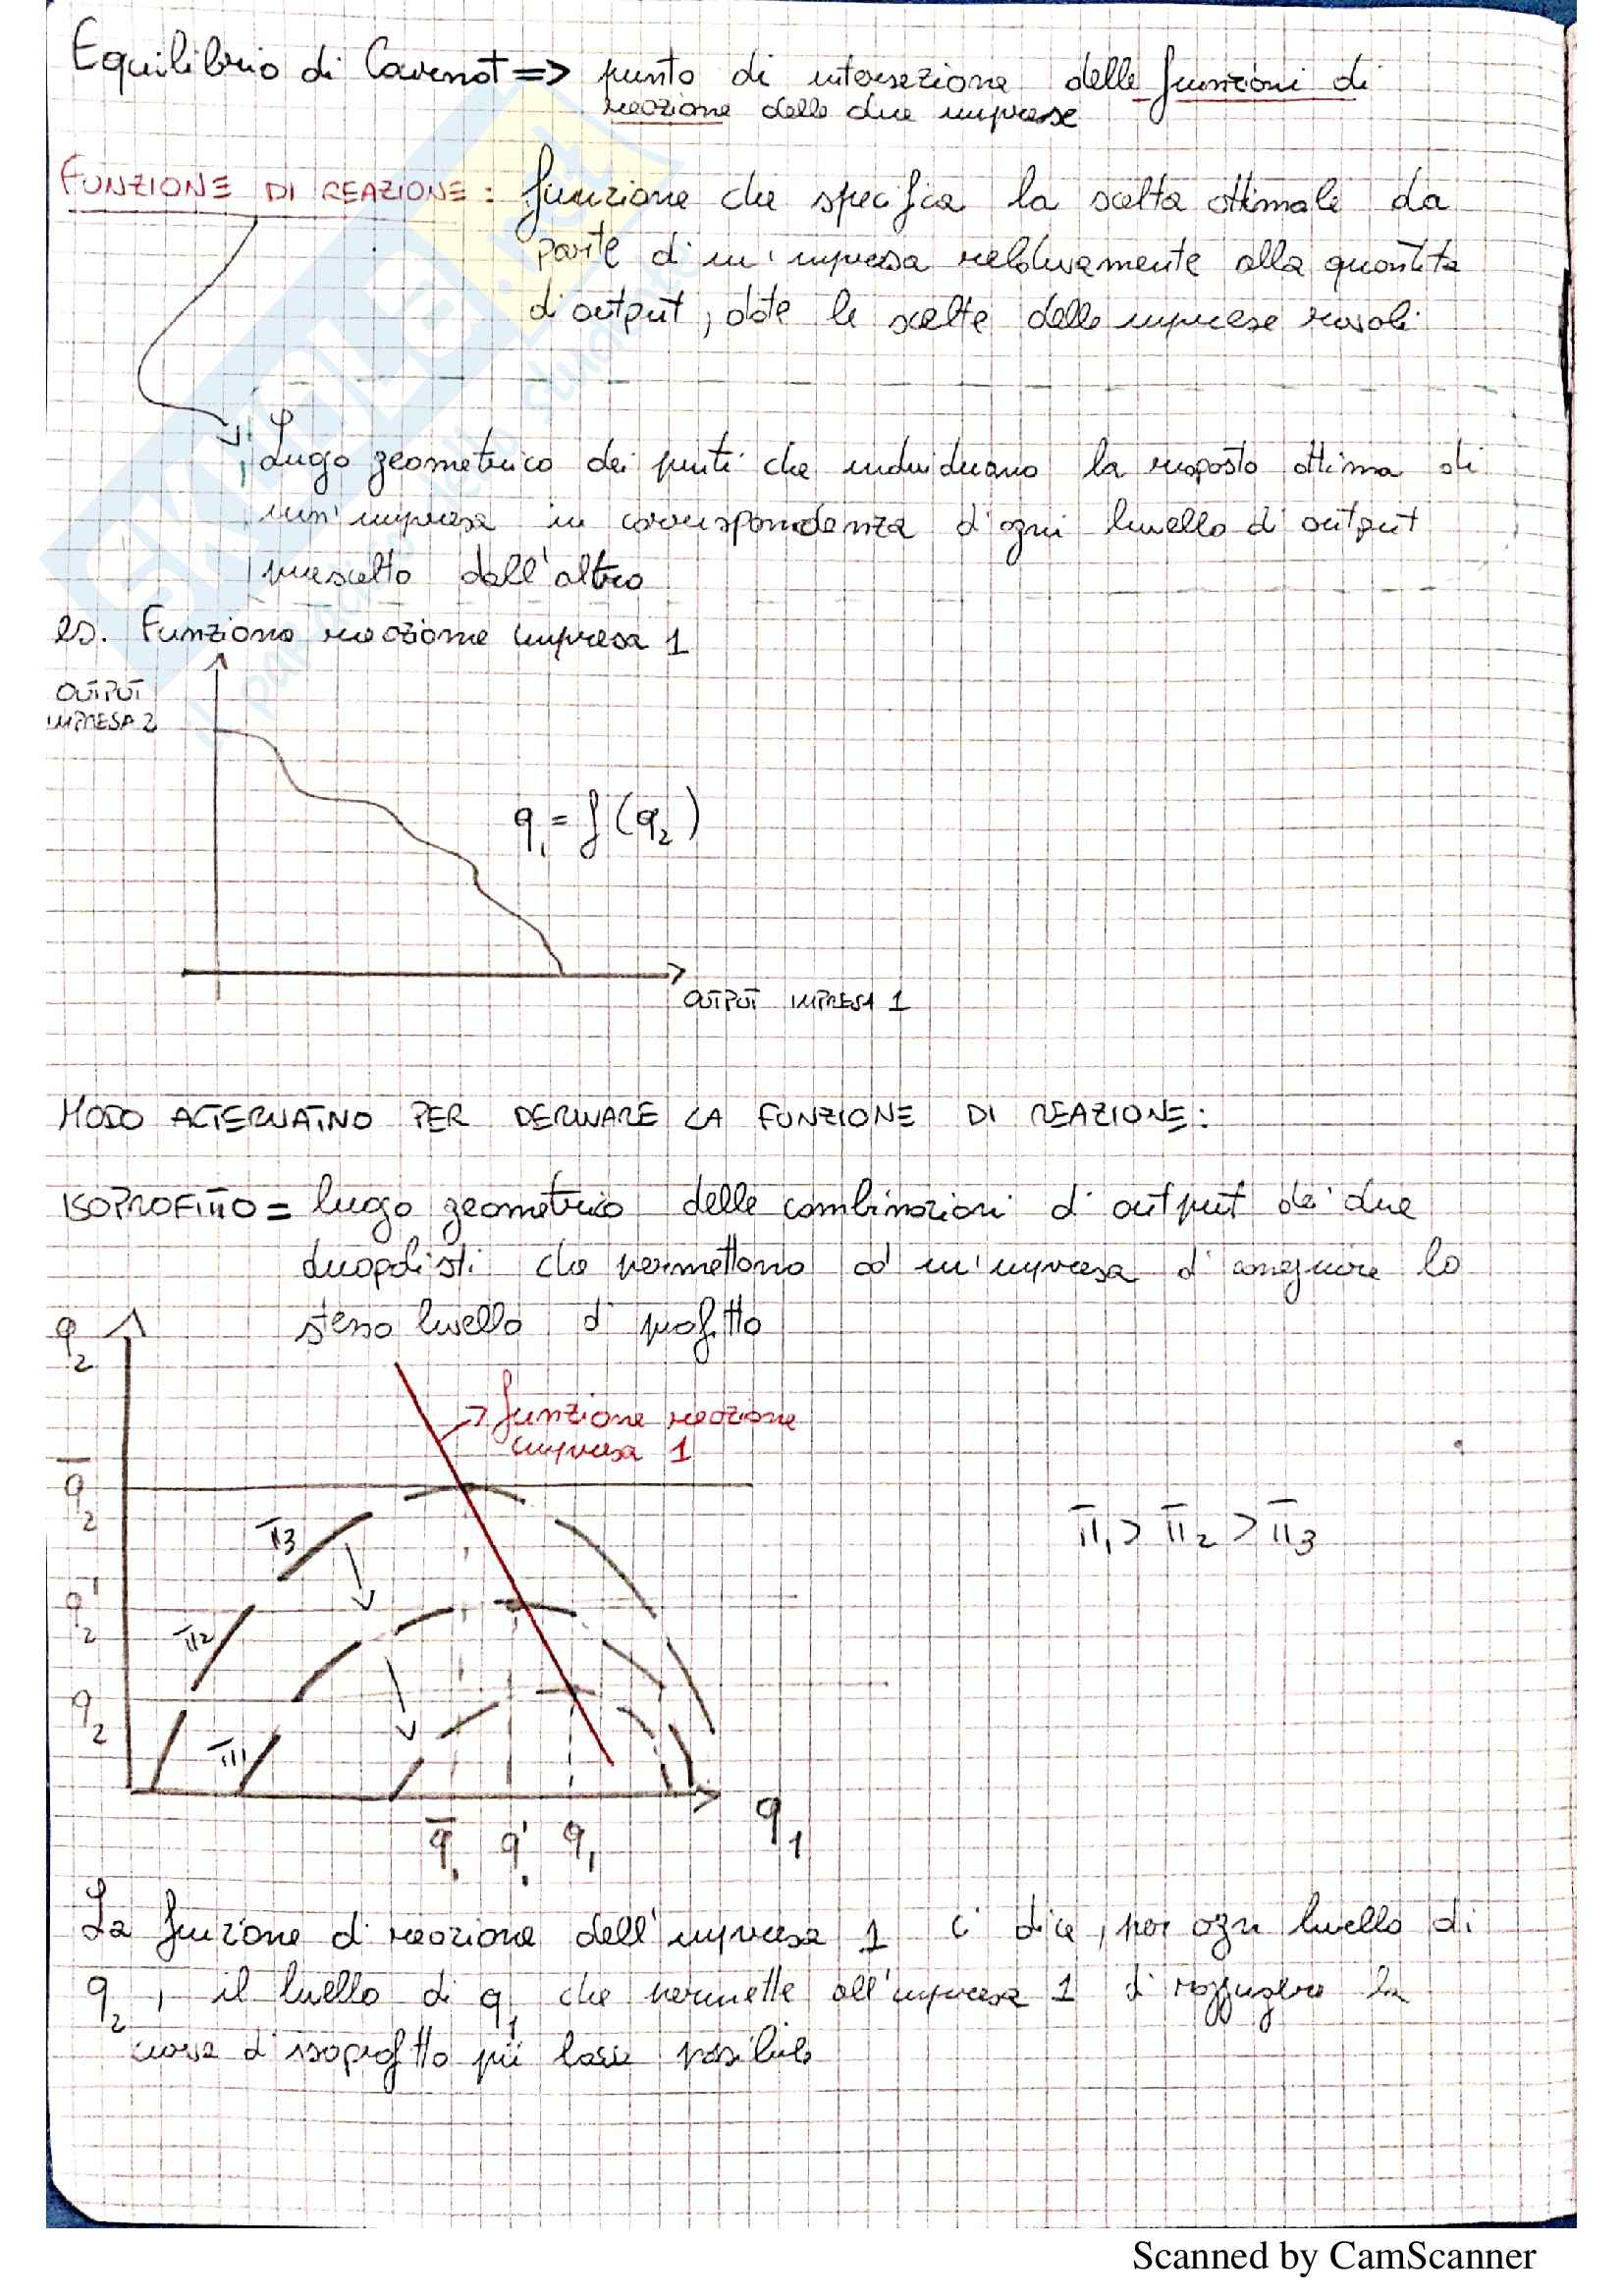 Equilibrio di Cournot => punto di intersezione delle funzioni di
reazione delle due imprese
FUNZIONE DI REAZIONE: funzione che specifica la scelta ottimale da
parte di un'impresa relativamente alla quantità
di output, date le scelte delle imprese rivali
Luogo geometrico dei punti che individuano la risposta ottima di
un'impresa in corrispondenza d'ogni livello d'output
prescelto dall'altra
es. Funzione reazione impresa 1
OUTPUT
IMPRESA 2
q₁ = f(q₂)
OUTPUT IMPRESA 1
MODO ALTERNATIVO PER DERIVARE LA FUNZIONE DI REAZIONE:
ISOPROFITTO = luogo geometrico delle combinazioni d'output dei due
duopolisti che permettono ad un'impresa d'conseguire lo
stesso livello d' profitto
q₂
funzione reazione
impresa 1
q̄₂
π̄₁ > π̄₂ > π̄₃
π̄3
q'₂
π̄2
q₂
π̄1
q̄₁ q'₁ q₁ q₁
La funzione d' reazione dell'impresa 1 ci dice, per ogni livello di
q₂, il livello di q₁ che permette all'impresa 1 di raggiungere la
curva d'isoprofitto più bassa possibile
SKUOLA.net
Scanned by CamScanner